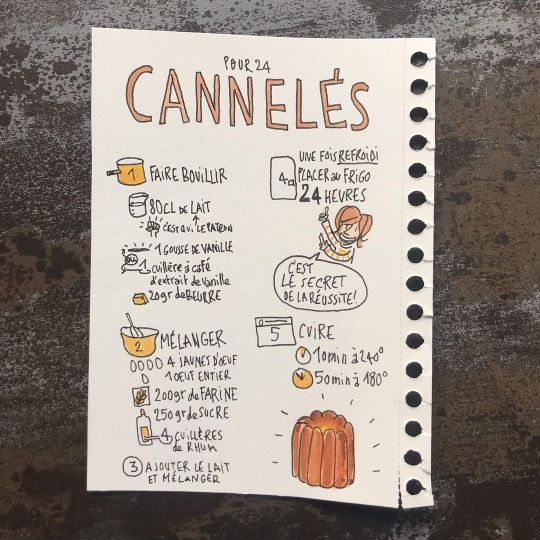 POUR 24
CANNELÉS
1 FAIRE BOUILLIR
80CL DE LAIT
C'EST QUI LE PATRON
1 GOUSSE DE VANILLE
OU 1 cuillère à café
d'extrait de vanille
20gr de BEURRE
2 MÉLANGER
4 JAUNES D'OEUF
1 OEUF ENTIER
200gr de FARINE
250gr de SUCRE
4 CUILLÈRES
de RHUM
3 AJOUTER LE LAIT
ET MÉLANGER
4 UNE FOIS REFROIDI
PLACER AU FRIGO
24 HEURES
C'EST
LE SECRET
DE LA RÉUSSITE!
5 CUIRE
10min à 240°
50min à 180°